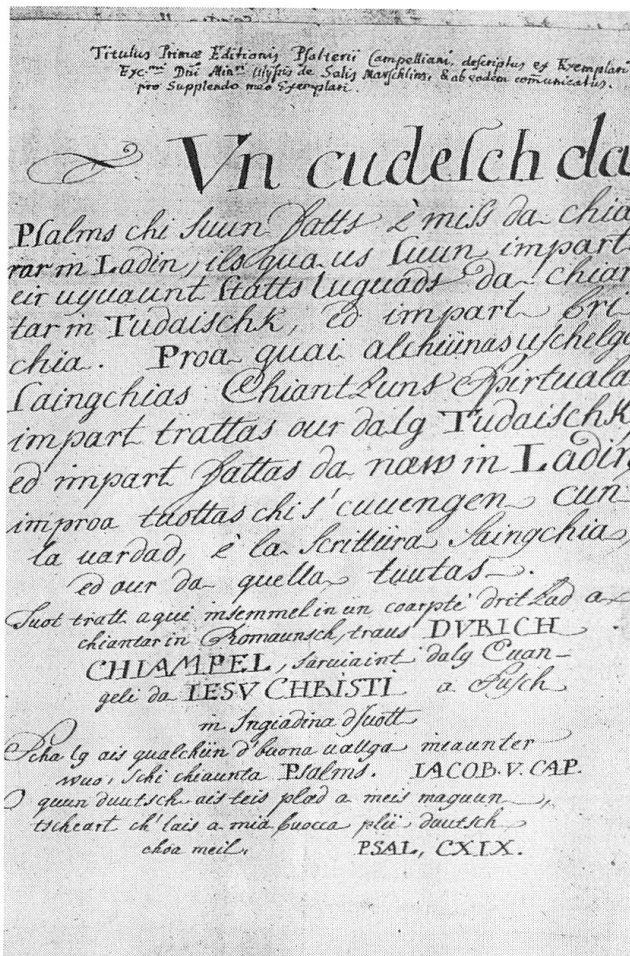 Titulus Primæ Editionis Psalterii Campelliani, descriptus ex Exemplari
Exc.mi Dni Minri Ulyssis de Salis Marschlins, & ab eodem com̄unicatus.
pro Supplendo meo Exemplari.
Vn cudesch da
Psalms chi suun fatts è miss da chia
rar in Ladin, ils qua us suun impart
eir uyuaunt statts luguads da chian
tar in Tudaischk, ed impart bri
chia. Proa quai alchiünas uschelgo
saingchias Chiantzuns Spirtuala
impart trattas our dalg Tudaischk
ed impart fattas da næw in Ladin,
improa tuottas chi s' cuuengen cun
la uardad, è la Scrittüra Saingchia,
ed our da quella tuutas.
Tuot tratt aqui insemmel in un coarp è drizad a
chiantar in Romaunsch, traus DVRICH
CHIAMPEL, saruiaint dalg Euan-
geli da IESV CHRISTI a Susch
in Ingiadina dsuott
Scha lg ais qualchün d'buona uœlga meaunter
wuo, schi chiaunta Psalms. IACOB. V. CAP.
O quun duutsch ais teis plæd a meis maguun,
tscheart ch' lais a mia buocca plü duutsch
choa meil. PSAL, CXIX.